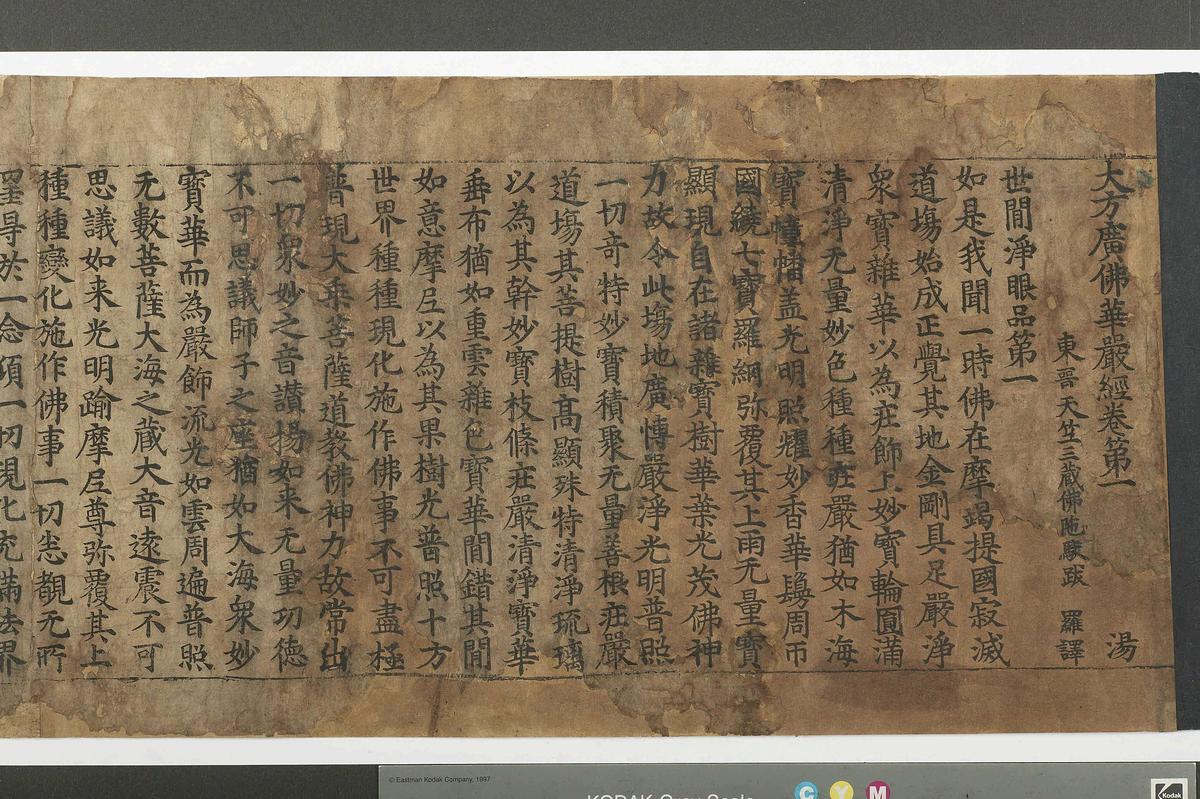 大方廣佛華嚴經卷第一 湯
東晉天竺三藏佛陁馱跋 羅譯
世間淨眼品第一
如是我聞一時佛在摩竭提國寂滅
道場始成正覺其地金剛具足嚴淨
衆寶雜華以為莊飾上妙寶輪圓滿
清淨无量妙色種種莊嚴猶如大海
寶幢幡盖光明照耀妙香華鬘周帀
國繞七寶羅網弥覆其上雨无量寶
顯現自在諸雜寶樹華葉光茂佛神
力故令此塲地廣博嚴淨光明普照
一切奇特妙寶積聚无量善根莊嚴
道塲其菩提樹高顯殊特清淨琉璃
以為其幹妙寶枝條莊嚴清淨寶華
垂布猶如重雲雜色寶華間錯其間
如意摩尼以為其果樹光普照十方
世界種種現化施作佛事不可盡極
普現大乘菩薩道教佛神力故常出
一切衆妙之音讃揚如来无量功德
不可思議師子之座猶如大海衆妙
寶華而為嚴飾流光如雲周遍普照
无數菩薩大海之蔵大音遠震不可
思議如来光明踰摩尼尊弥覆其上
種種變化施作佛事一切悉覩无所
罣导於一念頃一切現化充滿法界
© Eastman Kodak Company, 1997
KODAK Gray Scale
C Y M
Kodak